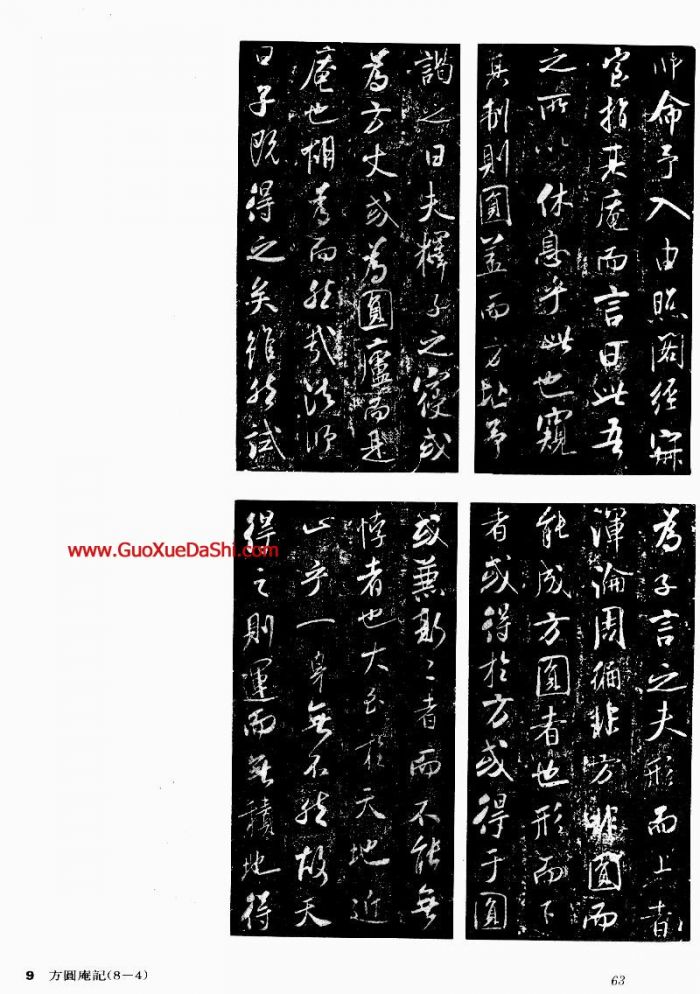 師命予入由照閣經寂
室指其庵而言曰此吾
之所以休息乎此也窺
其制則圓蓋而方址予
謁之曰夫釋子之寢或
為方丈或為圓廬而是
庵也胡為而然哉法師
曰子既得之矣雖然試
為子言之夫形而上者
渾淪周徧非方非圓而
能成方圓者也形而下
者或得於方或得于圓
或兼斯二者而不能無
悖者也大至於天地近
止乎一身無不然故天
得之則運而無積地得
www.GuoXueDaShi.com
9 方圓庵記(8—4)
63